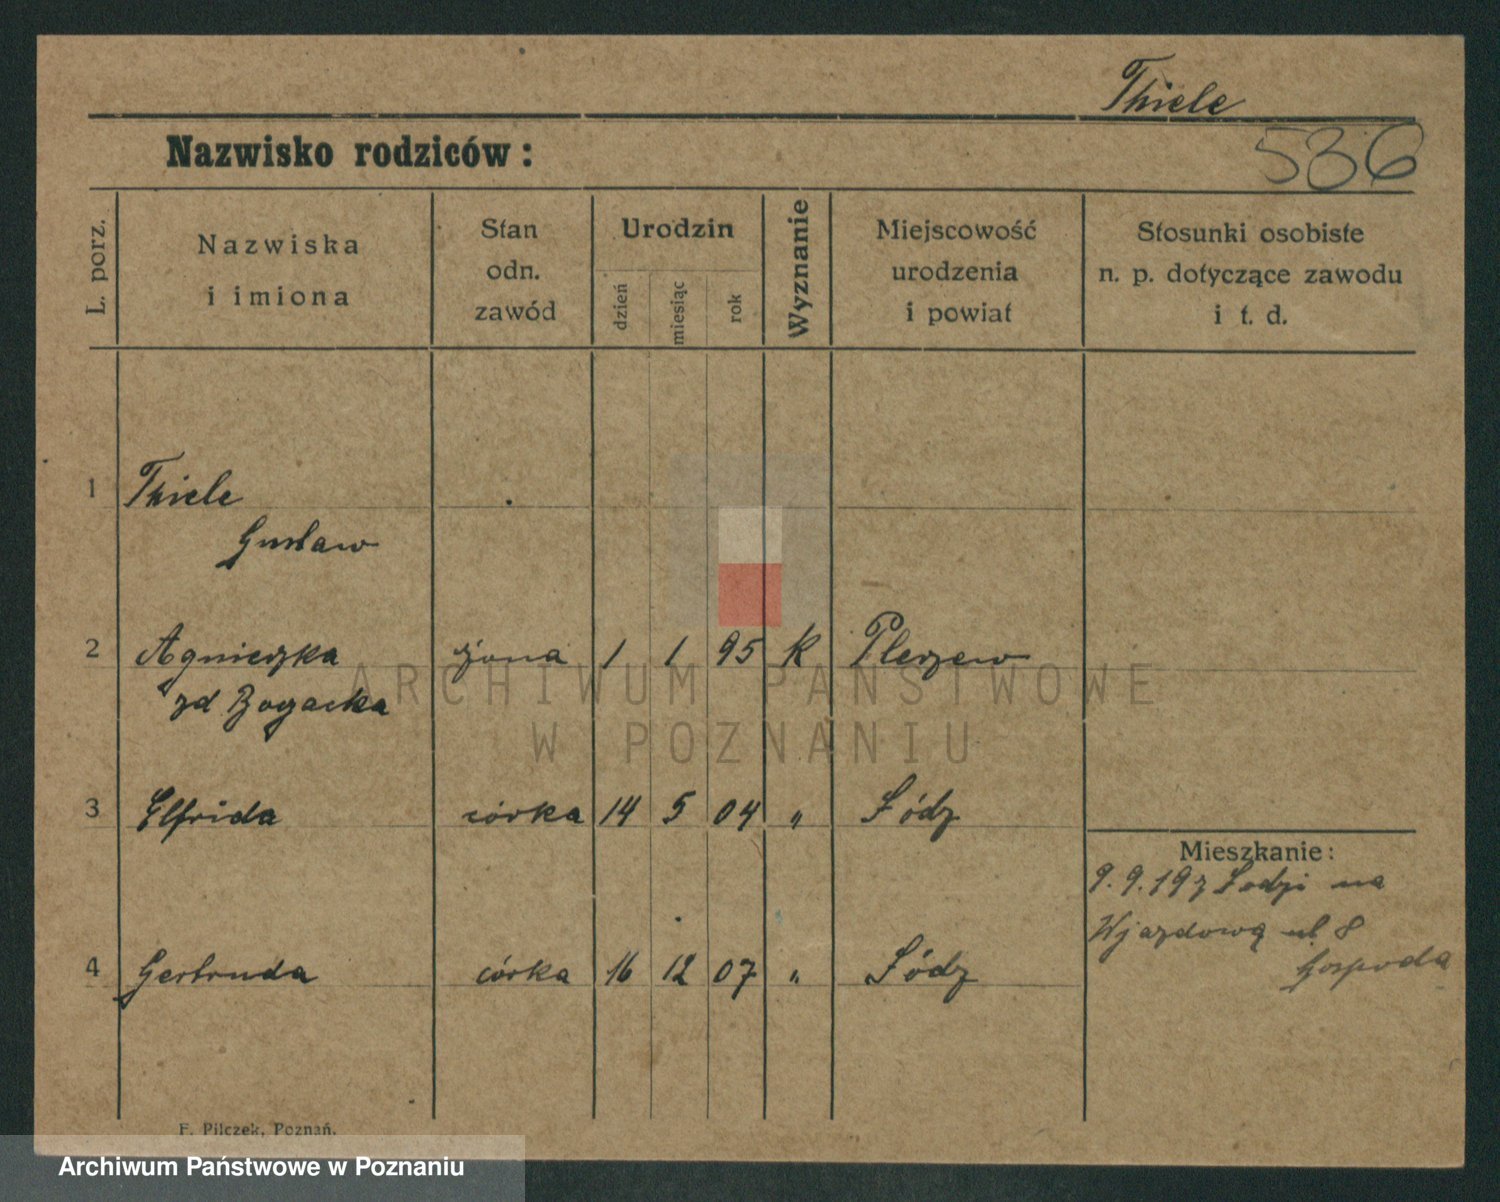 Thiele
Nazwisko rodziców:
536
L. porz.
Nazwiska
i imiona
Stan
odn.
zawód
Urodzin
dzień
miesiąc
rok
Wyznanie
Miejscowość
urodzenia
i powiat
Stosunki osobiste
n. p. dotyczące zawodu
i t. d.
1 Thiele
Gustaw
2 Agnieszka żona 1 1 95 k Pleszew
zd Bogacka
3 Elfrida córka 14 5 04 " Łódz
Mieszkanie:
9.9.19 z Łodzi na
Wjazdową ul 8
Gospoda
4 Gertruda córka 16 12 07 " Łódz
F. Pilczek, Poznań.
ARCHIWUM PAŃSTWOWE
W POZNANIU
Archiwum Państwowe w Poznaniu